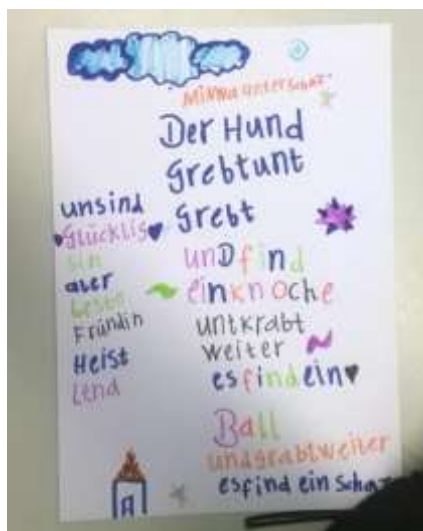 Minna unter schaz
Der Hund
Grebtunt
Grebt
unD find
einknoche
untkrabt
weiter
esfindein
Ball
undgrabtweiter
esfind ein Schaz
unsind
Glücklis
sin
aber
beste
Fründin
Heist
Lena